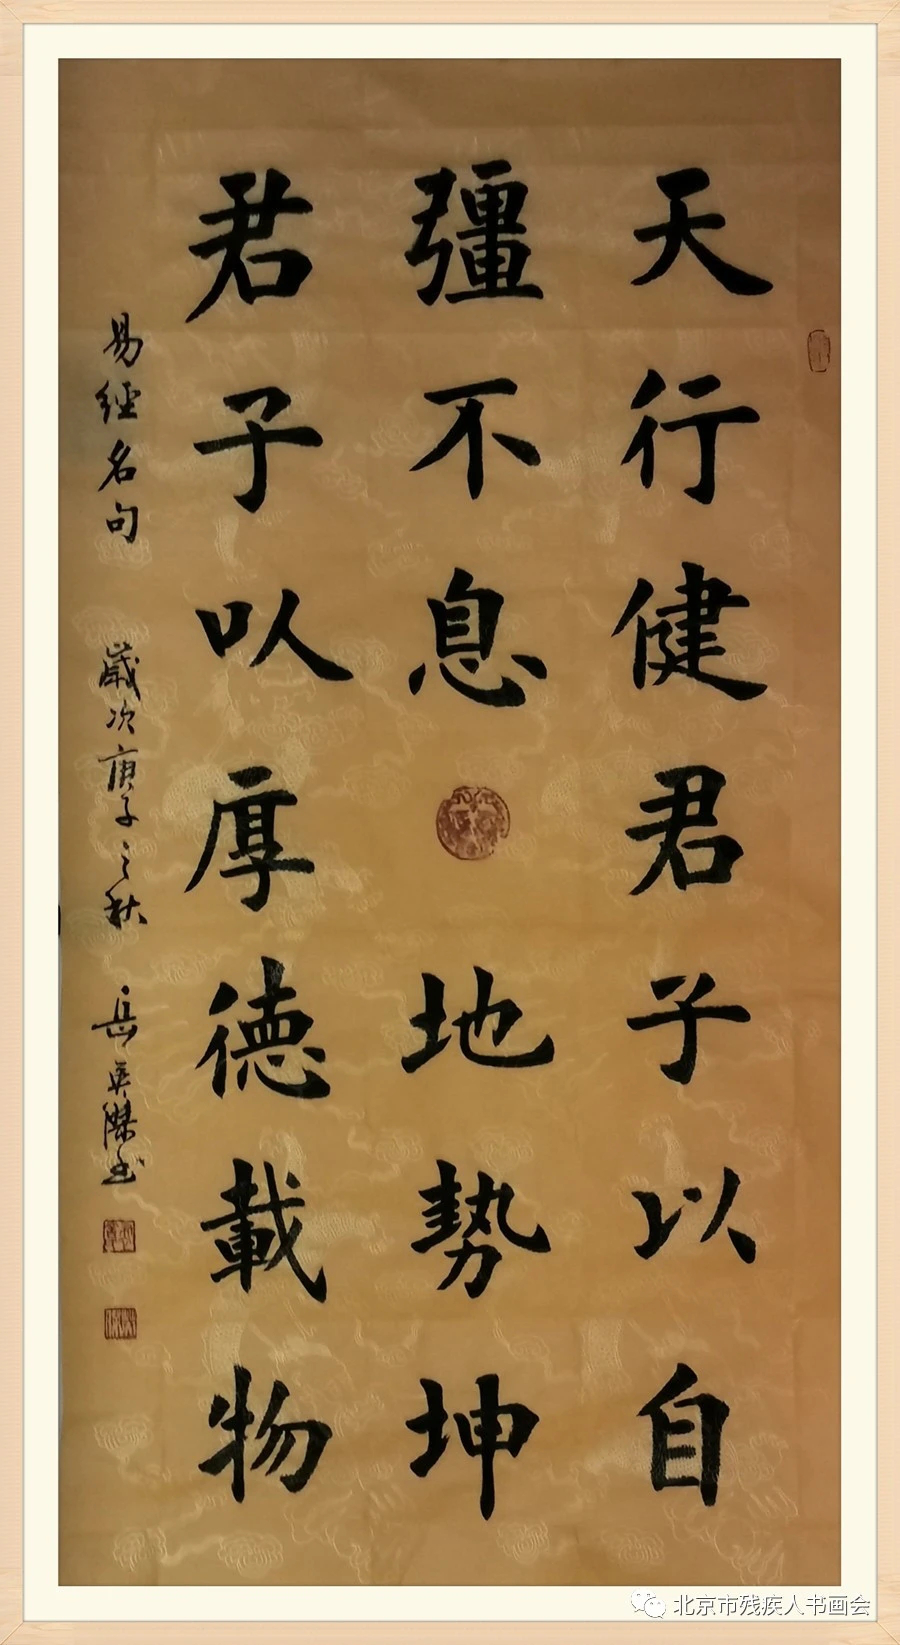 天行健君子以自
彊不息地勢坤
君子以厚德載物
易經名句 歲次庚子之秋 岳英傑书
北京市残疾人书画会